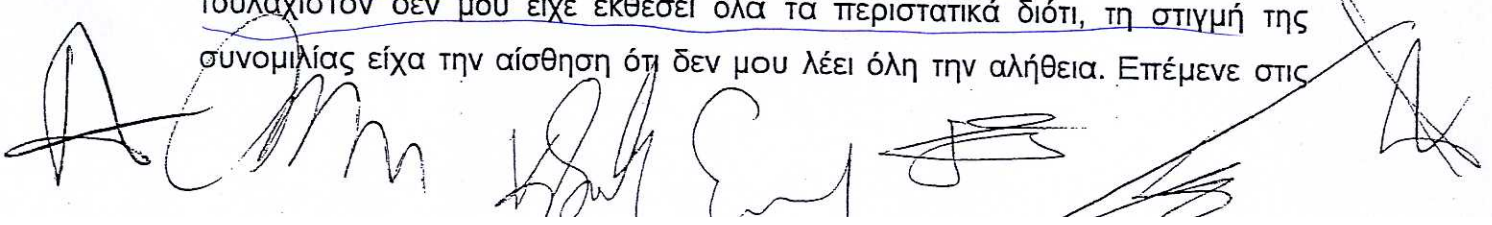 τουλάχιστον δεν μου είχε εκθέσει όλα τα περιστατικά διότι, τη στιγμή της
συνομιλίας είχα την αίσθηση ότι δεν μου λέει όλη την αλήθεια. Επέμενε στις